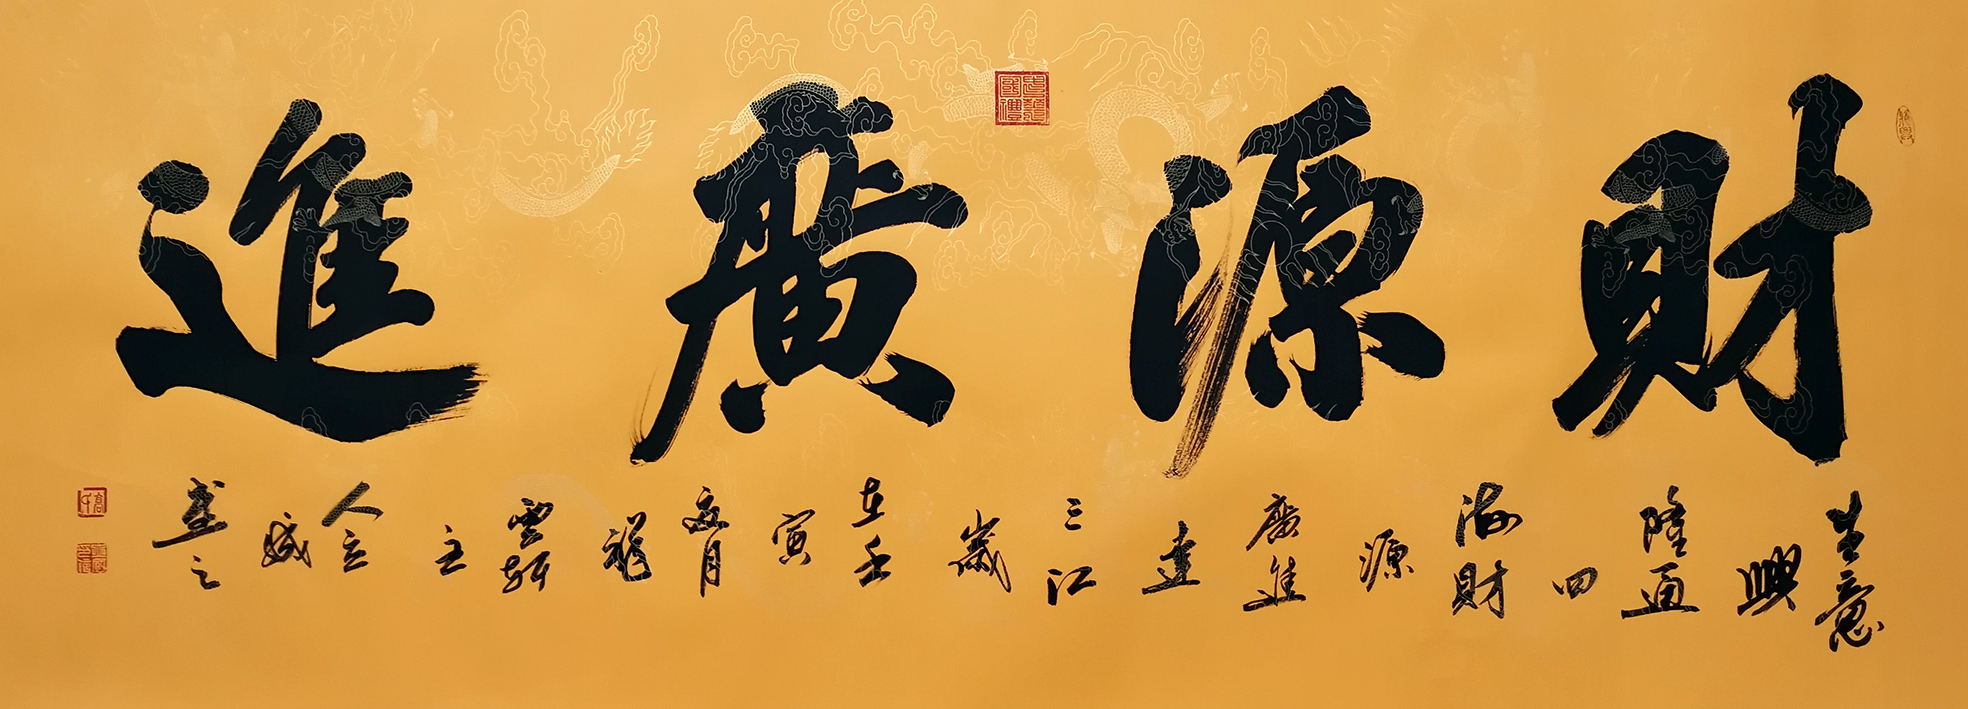 財源廣進
生意
興
隆通
四
海財
源
廣進
達
三江
歲
在壬
寅
夏月
龍
雲軒
主
人
書之